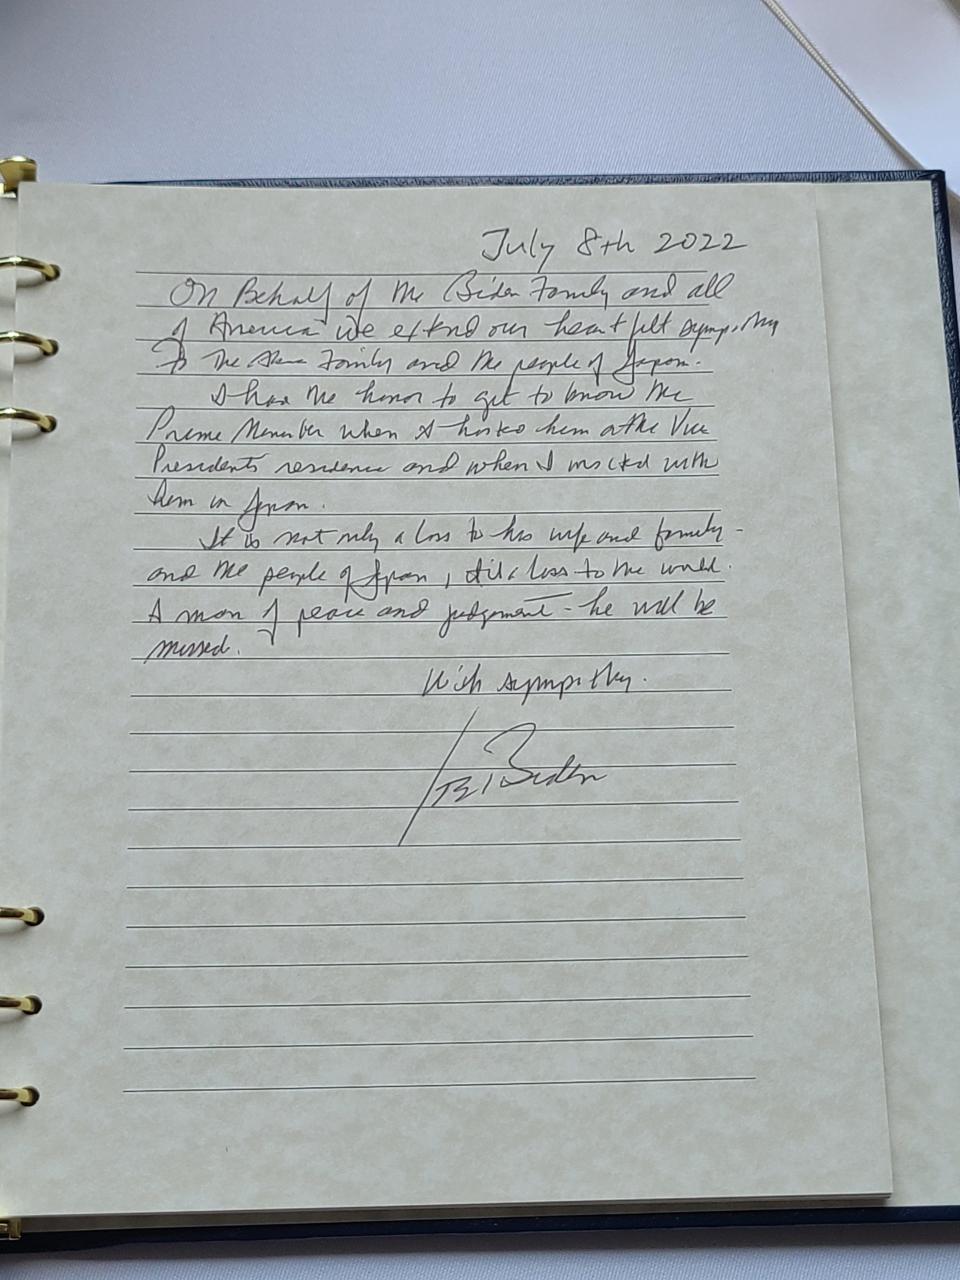 July 8th 2022
On Behalf of the Biden Family and all
of America we extend our heart felt sympathy
to the Abe Family and the people of Japan.
I had the honor to get to know the
Prime Minister when I hosted him at the Vice
Presidents residence and when I visited with
him in Japan.
It is not only a loss to his wife and family -
and the people of Japan, it's a loss to the world.
A man of peace and judgement - he will be
missed.
With sympathy.
Joe Biden